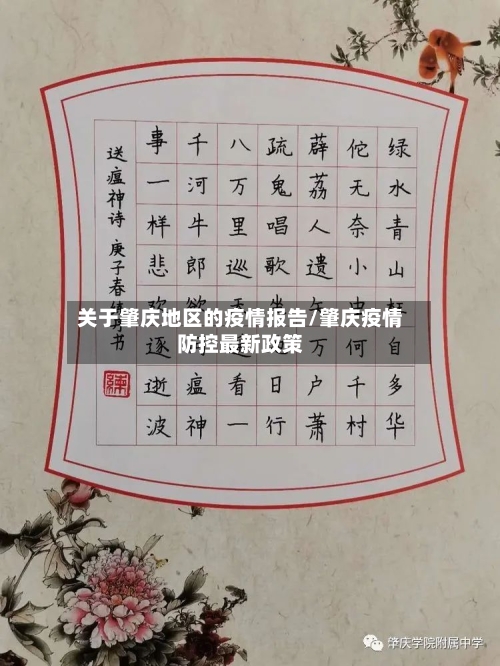 绿水青山枉自多华
佗无奈小虫何千村
薜荔人遗矢万户萧
疏鬼唱歌坐日行
八万里巡天看一
千河牛郎欲瘟神
事一样悲欢逐逝波
送瘟神诗 庚子春 书
关于肇庆地区的疫情报告/肇庆疫情
防控最新政策
肇庆学院附属中学